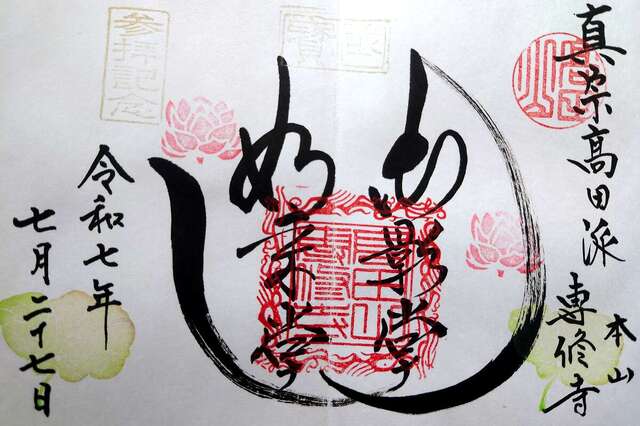 真宗高田派
本山
専修寺
御影堂
如来堂
令和七年
七月二十七日
参拝記念
国宝